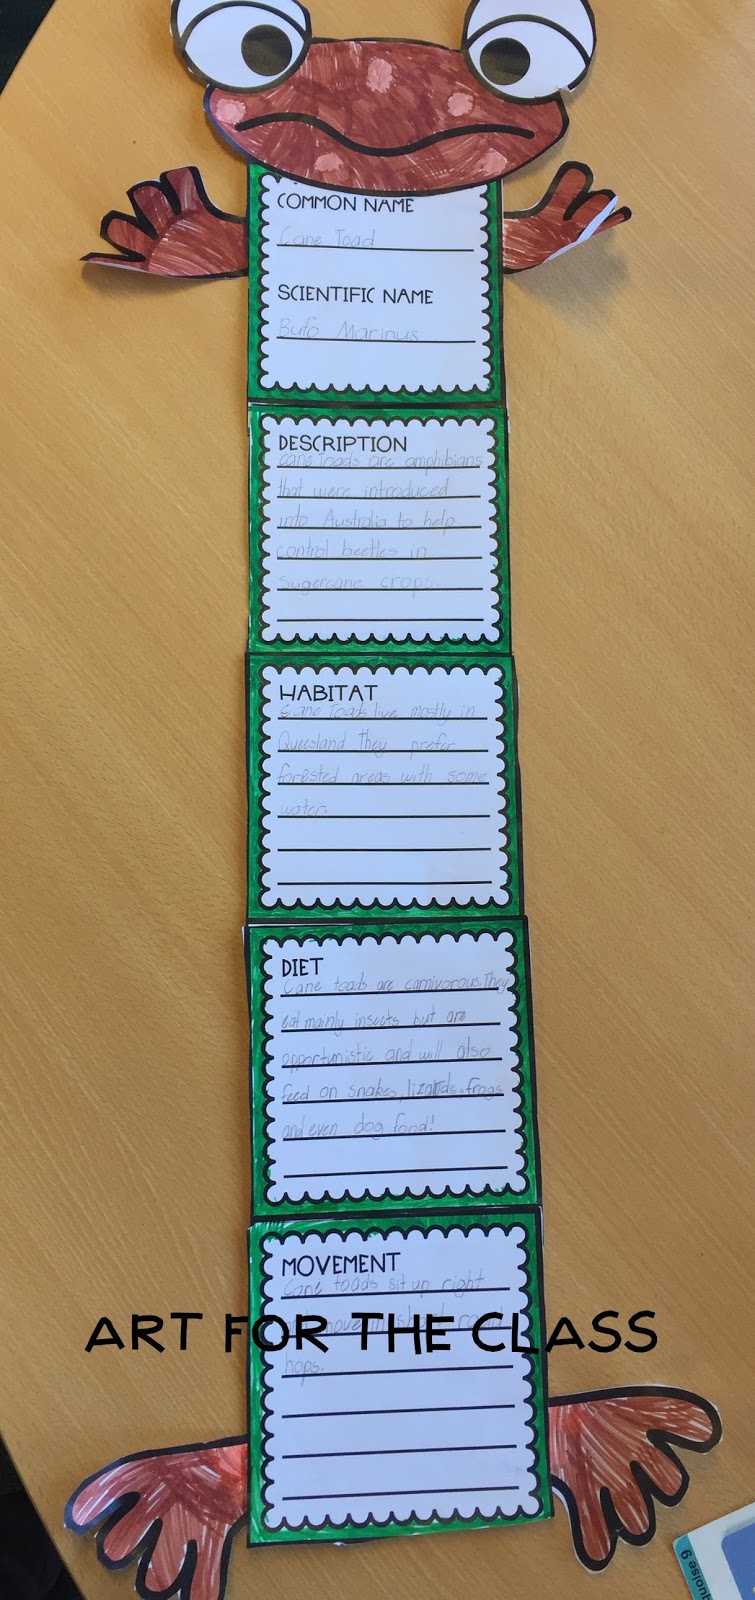 COMMON NAME
Cane Toad
SCIENTIFIC NAME
Bufo Marinus
DESCRIPTION
Cane Toads are amphibians
that were introduced
into Australia to help
control beetles in
sugercane crops.
HABITAT
Cane Toads live mostly in
Queesland They prefer
forested areas with some
water.
DIET
Cane toads are carnivorous. They
eat mainly insects but are
opportunistic and will also
feed on snakes, lizards, frogs
and even dog food!
MOVEMENT
Cane toads sit up right
and move in short
ART FOR THE CLASS
hops.
quoise 9